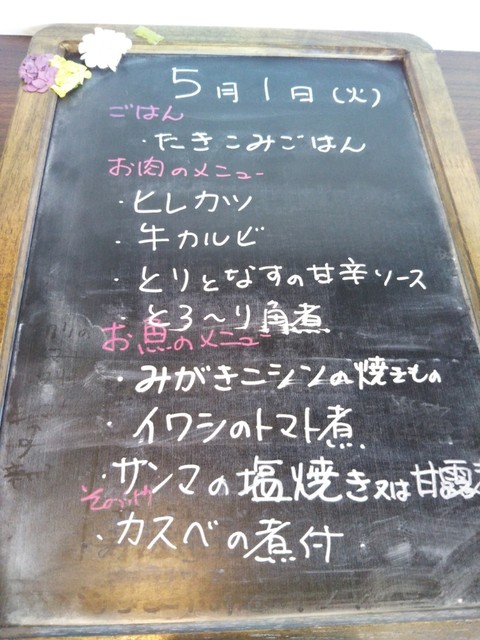 5月1日(火)
ごはん
・たきこみごはん
お肉のメニュー
・ヒレカツ
・牛カルビ
・とりとなすの甘辛ソース
・とろ〜り角煮
お魚のメニュー
・みがきニシンの焼きもの
・イワシのトマト煮
・サンマの塩焼き又は甘露
・カスベの煮付